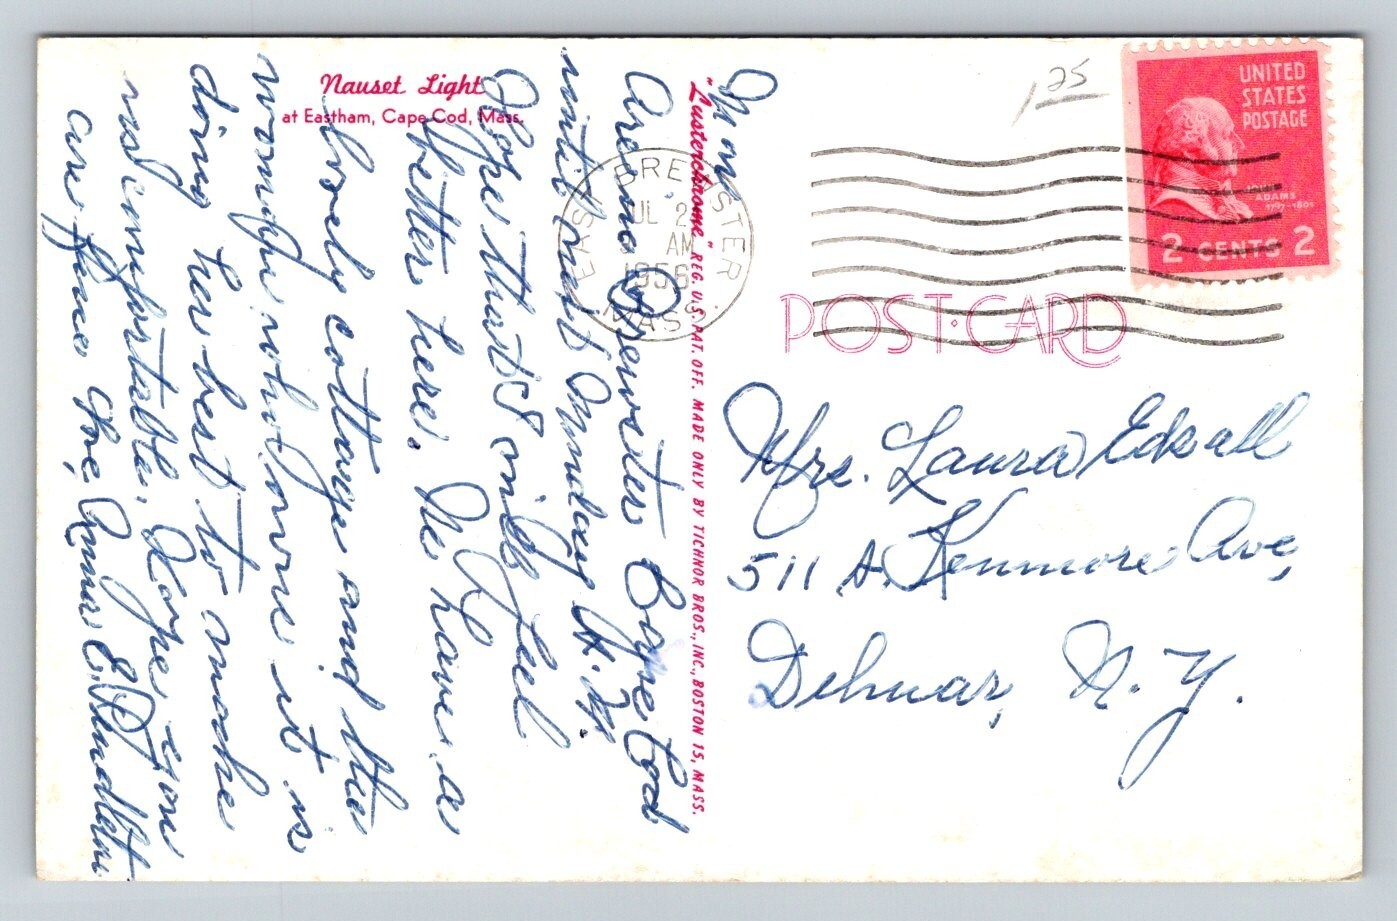 Nauset Light
at Eastham, Cape Cod, Mass.
"Lusterchrome" REG. U.S. PAT. OFF. MADE ONLY BY TICHNOR BROS., INC., BOSTON 15, MASS.
POST CARD
1 25
UNITED
STATES
POSTAGE
JOHN
ADAMS
1797-1801
2 CENTS 2
EAST BREWSTER
JUL 2
AM
1956
MASS.
Mon
Are in Brewster Cape Cod
until next Sunday A.M.
Hope that S will feel
better here. We have a
lovely cottage and the
woman who owns it is
doing her best to make
us comfortable. Hope you
are fine too, Anna E.
Mrs. Laura Edsall
511 Kenmore Ave,
Delmar, N.Y.